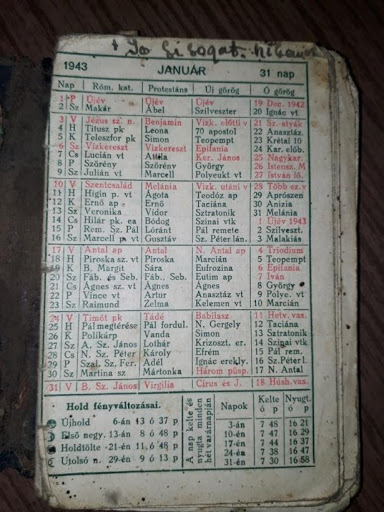 1943 JANUÁR 31 nap
Nap Róm. kat. Protestáns Uj görög Ó görög
1 P Újév Újév Újév 19 Dec. 1942
2 Sz Makár Ábel Szilveszter 20 Ignác vt
3 V Jézus sz. n. Benjamin Vízk. előtti v 21 Sz. atyák
4 H Titusz pk Leona 70 apostol 22 Anasztáz.
5 K Teleszfor pk Simon Teopempt 23 Krétai 10
6 Sz Vízkereszt Vízkereszt Epifania 24 Kar. előb.
7 Cs Lucián vt Attila Ker. János 25 Nagykar.
8 P Szörény Szörény György 26 Istensz. M
9 Sz Julián vt Marcell Polyeukt vt 27 István fő.
10 V Szentcsalád Melánia Vízk. utáni v 28 Több ez. v
11 H Higin p. vt Ágota Teodóz ap 29 Aprószen
12 K Ernő ap Ernő Taciána 30 Anizia
13 Sz Veronika Vidor Sztratonik 31 Melánia
14 Cs Hilár pk. ea Bódog Szinai vtk 1 Újév 1943
15 P Rem. Sz. Pál Lóránt Pál remete 2 Szilveszt.
16 Sz Marcell p. vt Gusztáv Sz. Péter lán. 3 Malakiás
17 V Antal ap Antal N. Antal ap 4 Triodium
18 H Piroska sz. vt Piroska Marcián 5 Teopempt
19 K B. Margit Sára Eufrozina 6 Epifania
20 Sz Fáb. és Seb. Fáb., Seb. Eutim ap 7 Iván
21 Cs Ágnes sz. vt Ágnes Ágnes 8 György
22 P Vince vt Artúr Anasztáz vt 9 Polye. vt
23 Sz Raimund Zelma Kelemen vt 10 Marcián
24 V Timót pk Tádé Babilasz 11 Hetv. vas.
25 H Pál megtérése Pál fordul. N. Gergely 12 Taciána
26 K Polikárp Vanda Simon 13 Sztratonik
27 Sz A. Sz. János Lothár Krizoszt. er. 14 Szinai vtk
28 Cs N. Sz. Péter Károly Efrém 15 Pál rem.
29 P Szal. Sz. Fer. Adél Ignác erekly. 16 Sz. Péter l.
30 Sz Martina sz Mártonka Három püsp. 17 N. Antal
31 V B. Sz. János Virgilia Círus és J. 18 Húsh. vas.
Hold fényváltozásai.
Újhold 6-án 13 ó 37 p
Első negy. 13-án 8 ó 48 p
Holdtölte 21-én 11 ó 48 p
Utolsó n. 29-én 9 ó 13 p
A nap kelte és
nyugta minden
hét vasárnapján
Napok Kelte Nyugt.
ó p ó p
3-án 7 48 16 21
10-én 7 47 16 29
17-én 7 44 16 37
24-én 7 38 16 47
31-én 7 30 16 58